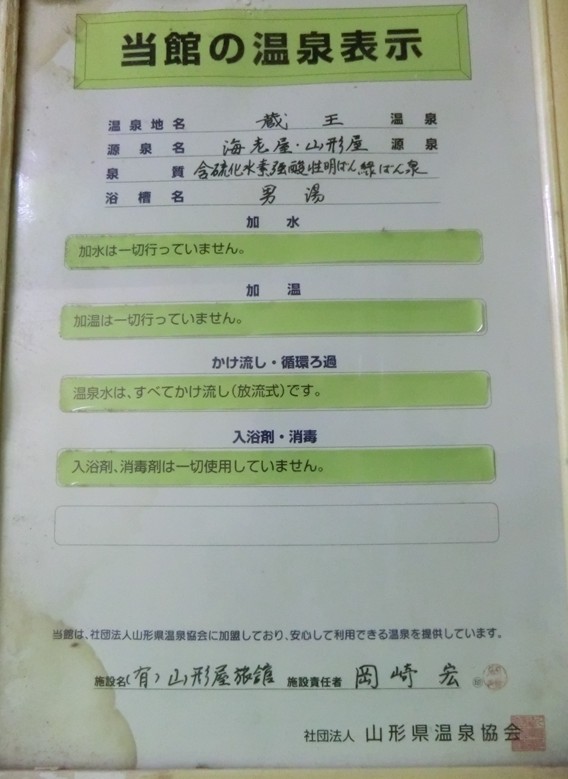 当館の温泉表示
温泉地名 蔵王 温泉
源泉名 海老屋・山形屋 源泉
泉質 含硫化水素強酸性明ばん緑ばん泉
浴槽名 男湯
加水
加水は一切行っていません。
加温
加温は一切行っていません。
かけ流し・循環ろ過
温泉水は、すべてかけ流し(放流式)です。
入浴剤・消毒
入浴剤、消毒剤は一切使用していません。
当館は、社団法人山形県温泉協会に加盟しており、安心して利用できる温泉を提供しています。
施設名(有)山形屋旅館 施設責任者 岡崎宏 ㊞
社団法人 山形県温泉協会